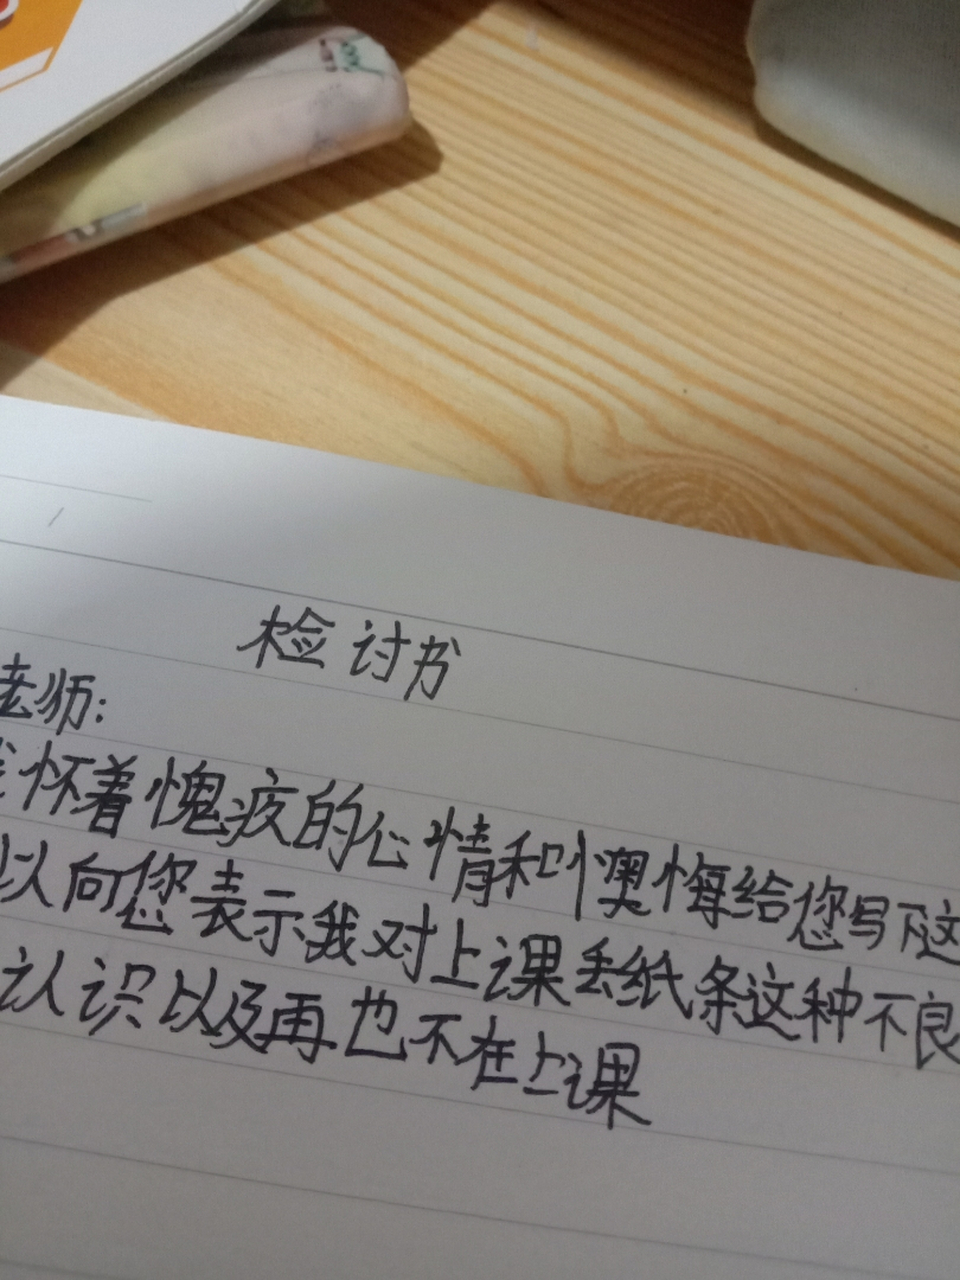 检讨书
老师:
我怀着愧疚的心情和懊悔给您写下这
以向您表示我对上课丢纸条这种不良
认识以及再也不在上课